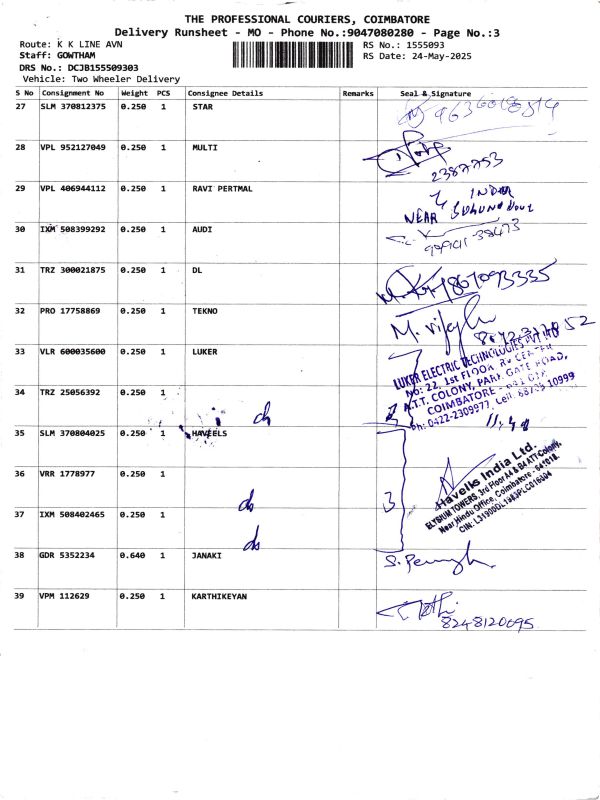 THE PROFESSIONAL COURIERS, COIMBATORE
Delivery Runsheet - MO - Phone No.:9047080280 - Page No.:3
Route: K K LINE AVN
RS No.: 1555093
Staff: GOWTHAM
RS Date: 24-May-2025
DRS No.: DCJB155509303
Vehicle: Two Wheeler Delivery
S No Consignment No Weight PCS Consignee Details Remarks Seal & Signature
27 SLM 370812375 0.250 1 STAR
28 VPL 952127049 0.250 1 MULTI
2387753
29 VPL 406944112 0.250 1 RAVI PERTMAL
NEAR
30 IXM 508399292 0.250 1 AUDI
31 TRZ 300021875 0.250 1 DL
32 PRO 17758869 0.250 1 TEKNO
33 VLR 600035600 0.250 1 LUKER
LUKER ELECTRIC TECHNOLOGIES PVT LTD
No: 22, 1st FLOOR, RV CENTER
A.T.T. COLONY, PARK GATE ROAD,
COIMBATORE - 641 018
Ph: 0422-2309977, Cell: 88705 10999
34 TRZ 25056392 0.250 1
35 SLM 370804025 0.250 1 HAVEELS
Havells India Ltd.
ELYSIUM TOWERS, 3rd Floor A4 & B4 ATT Colony,
Near Hindu Office, Coimbatore - 641018.
36 VRR 1778977 0.250 1
3
37 IXM 508402465 0.250 1
38 GDR 5352234 0.640 1 JANAKI
39 VPM 112629 0.250 1 KARTHIKEYAN
8248120695